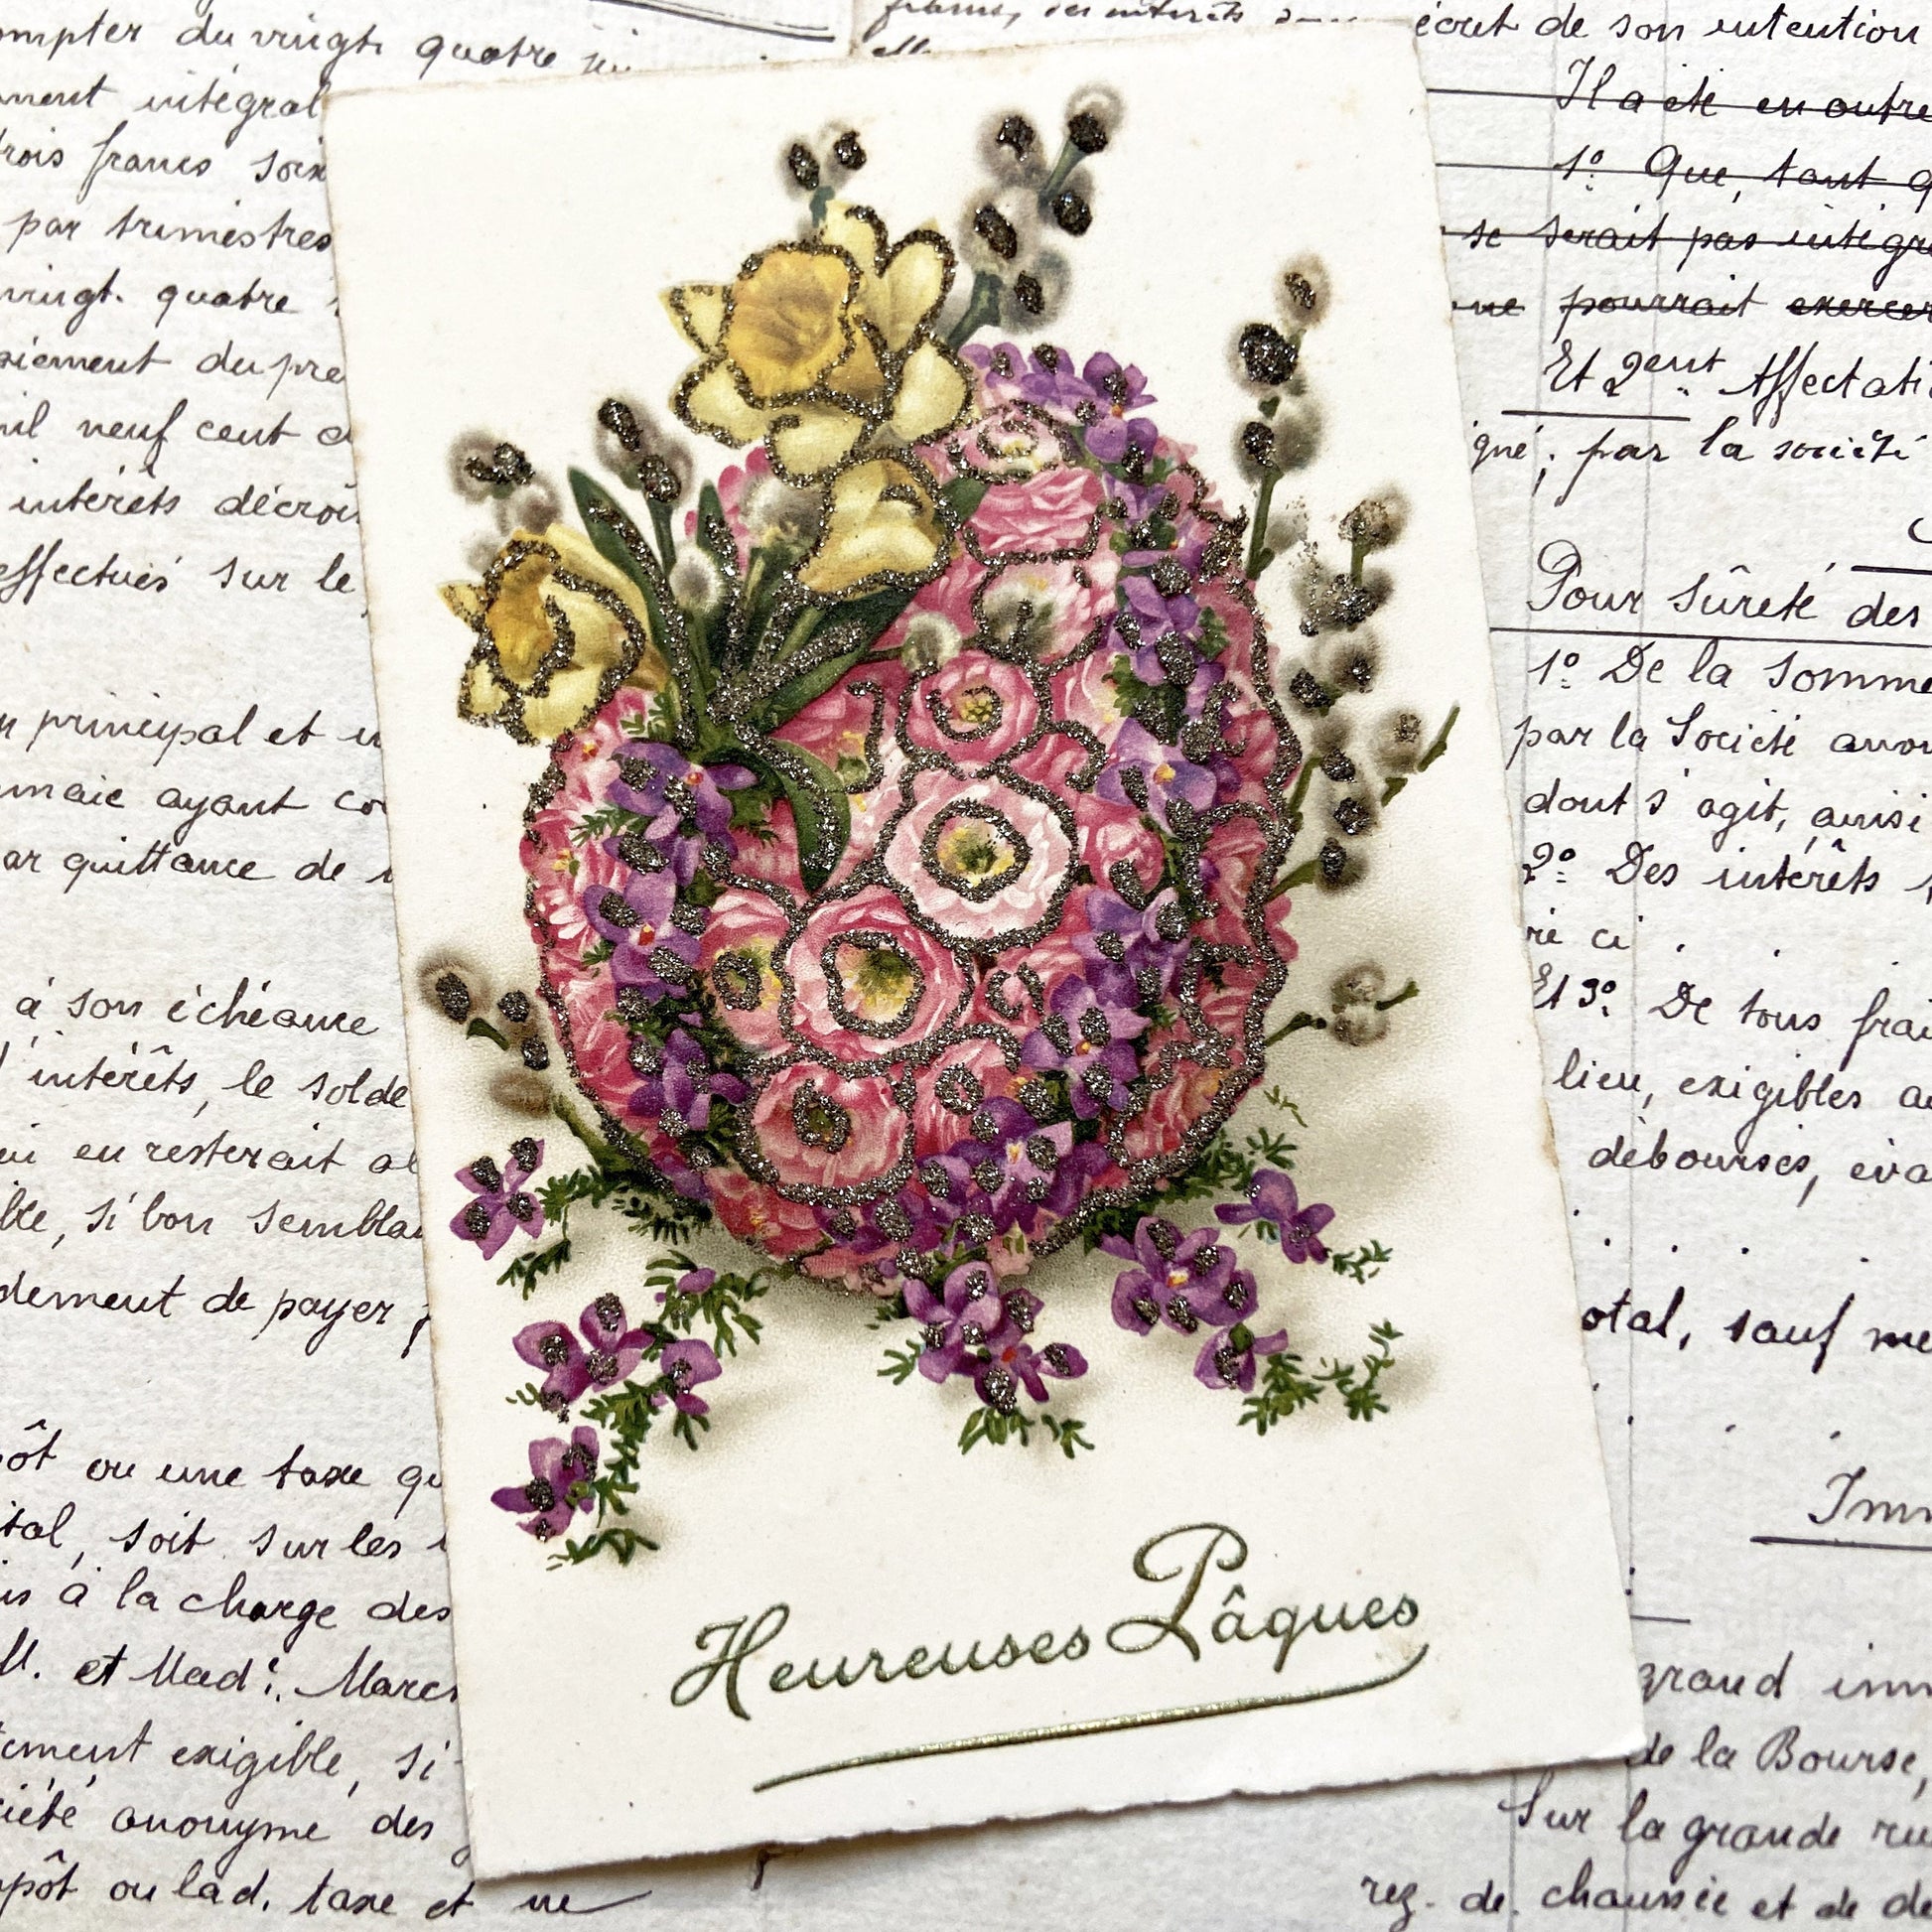 ompter du vingt quatre
écrit de son intention
ment intégral
Il a été en outre
rois francs soix
1º Que, tant q
par trimestres
se serait pas intégra
vingt. quatre
ne pourrait exercer
iement du pre
Et 2ent Affectati
il neuf cent
igné, par la société
intérêts décrois
effectués sur le
Pour sûreté des
1º De la somme
principal et
par la Société anon
dont s'agit, ainsi
naie ayant co
ar quittance de
2º Des intérêts
ré ci.
Et 3º. De tous frai
à son échéance
intérêts, le solde
lieu, exigibles a
ui en resterait al
débourses, éva
ble, si bon sembla
dement de payer
otal, sauf me
Heureuses Pâques
ôt ou une taxe qu
ital, soit sur les
Imm
is à la charge des
M. et Made. Marc
grand imm
ement exigible, si
de la Bourse,
ciété anonyme des
Sur la grande ru
pôt ou lad. taxe et ne
rez. de. chaussée et de de